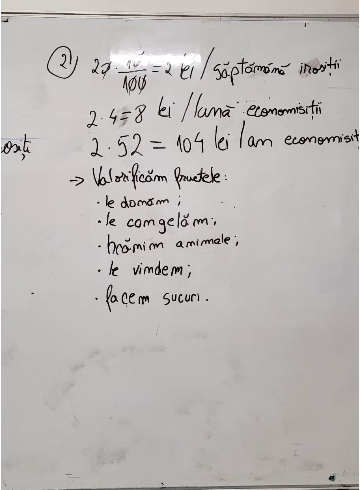 2) 20 · 10/100 = 2 lei / săptămână irosiți
2 · 4 = 8 lei / lună economisiți
2 · 52 = 104 lei / an economisiț
→ Valorificăm fructele:
· le donăm ;
· le congelăm;
· hrănim animale;
· le vindem;
· facem sucuri.